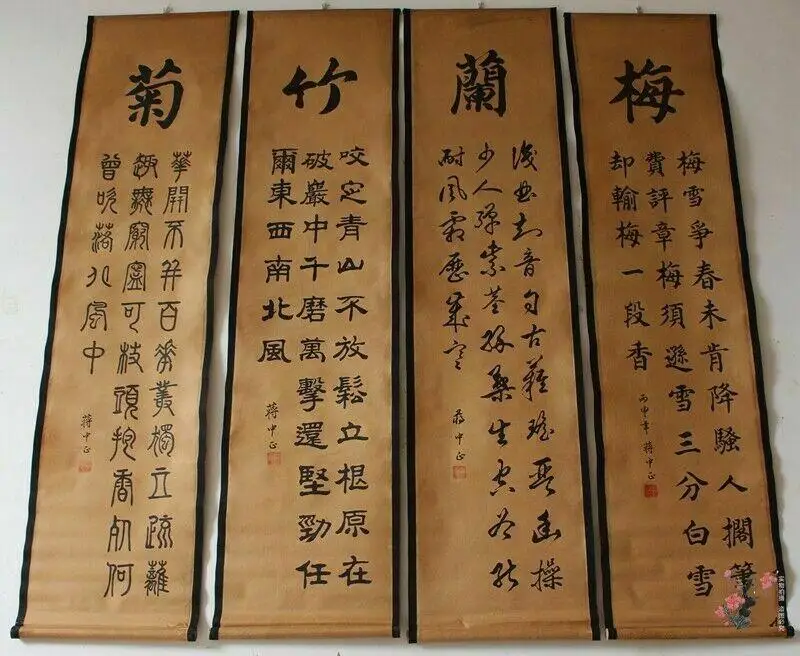 梅
梅雪爭春未肯降騷人擱筆
費評章梅須遜雪三分白雪
却輸梅一段香
丙申年 蔣中正
蘭
知音自古難瑤琴幽操
少人彈紫莖綠葉生空谷能
耐風霜歷歲寒
蔣中正
竹
咬定青山不放鬆立根原在
破巖中千磨萬擊還堅勁任
爾東西南北風
蔣中正
菊
華開不并百華叢獨立疏籬
趣無窮寧可枝頭抱香死何
曾吹落北風中
蔣中正
实物拍摄
盗图必究